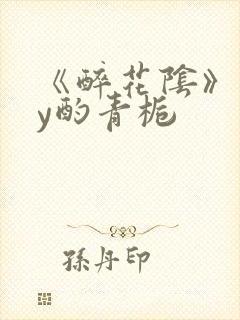 《醉花陰》
y酌青梔
孫丹印